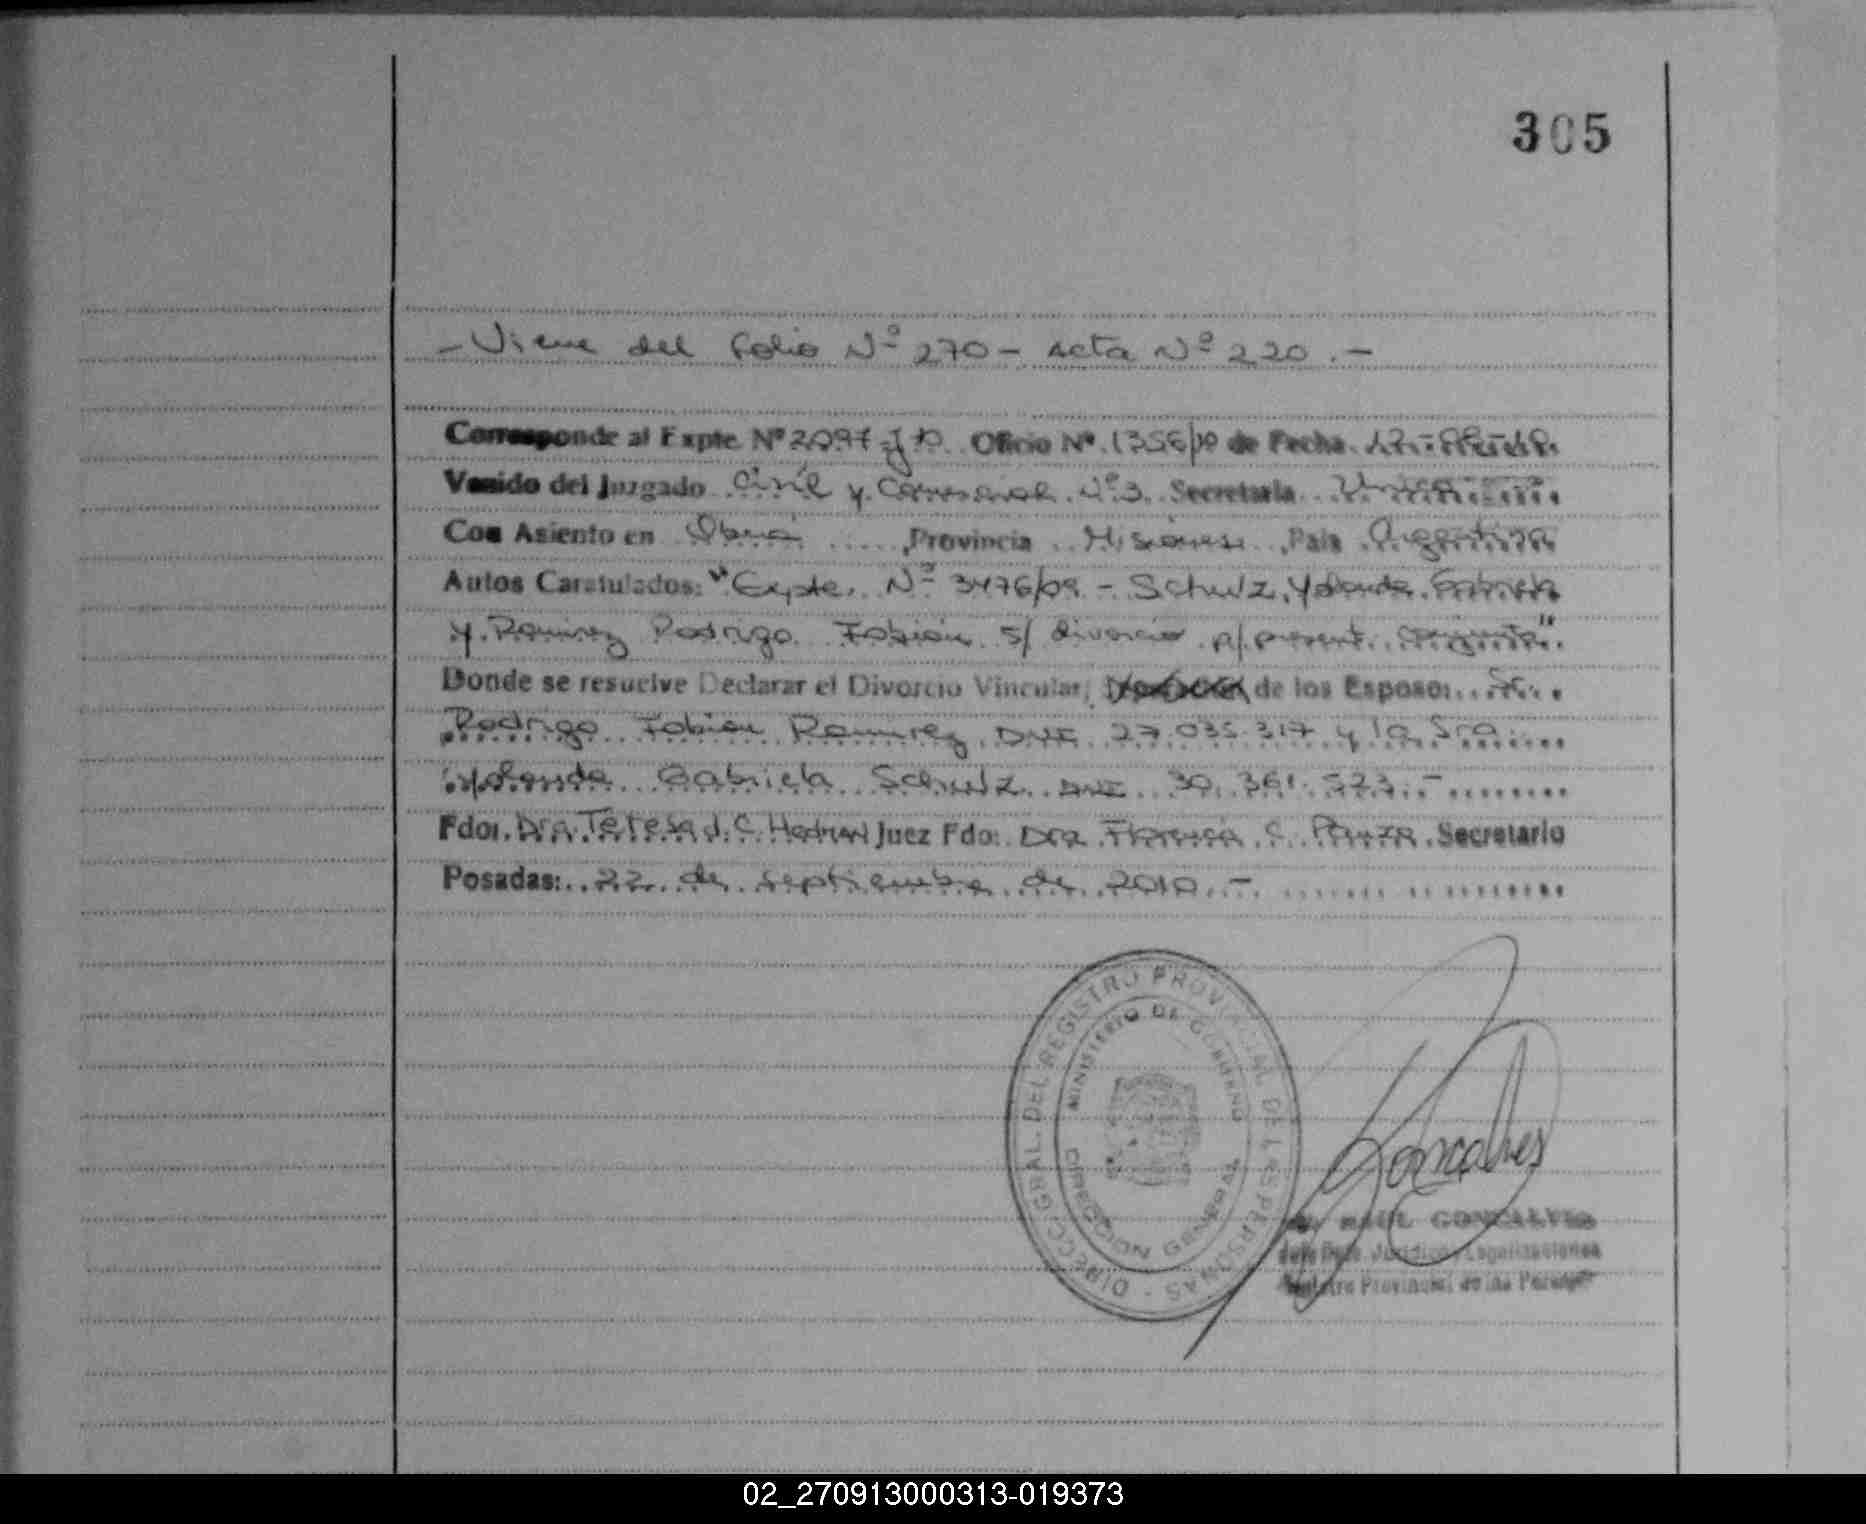 305
- Viene del folio Nº 270 - Acta Nº 220 . -
Corresponde al Expte Nº 2097 Oficio Nº 1356/10 de Fecha
Venido del Juzgado Civil y Comercial Nº 3 Secretaria Unica
Con Asiento en Oberá, Provincia Misiones, Pais Argentina
Autos Caratulados: "Expte. Nº 3476/09 - Schulz, Yolanda Gabriela
y Ramirez Rodrigo Fabián s/ divorcio p/ present. conjunta".
Donde se resuelve Declarar el Divorcio Vincular, de los Esposos: Sr.
Rodrigo Fabian Ramirez DNI 27.035.317 y la Sra
Yolanda Gabriela Schulz DNI 30.361.523. -
Fdo: Dra. Teresa J. C. Juez Fdo: Dra Florencia C. Secretario
Posadas: 22 de septiembre de 2010 . -
DIRECC. GRAL. DEL REGISTRO PROVINCIAL DE LAS PERSONAS
MINISTERIO DE GOBIERNO
DIRECCION GENERAL
Goncalves
RAUL GONCALVES
Jefe Dpto. Jurídico y Legalizaciones
Registro Provincial de las Personas
02_270913000313-019373